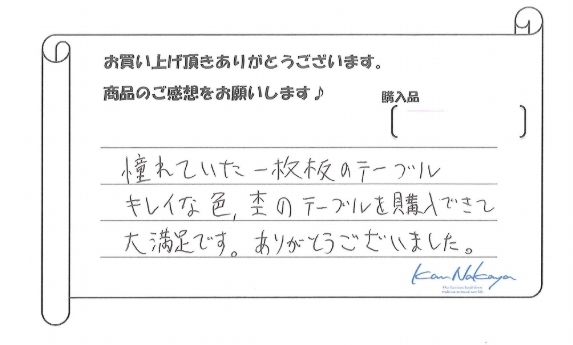 お買い上げ頂きありがとうございます。
商品のご感想をお願いします♪
購入品
憧れていた一枚板のテーブル
キレイな色,杢のテーブルを購入できて
大満足です。ありがとうございました。